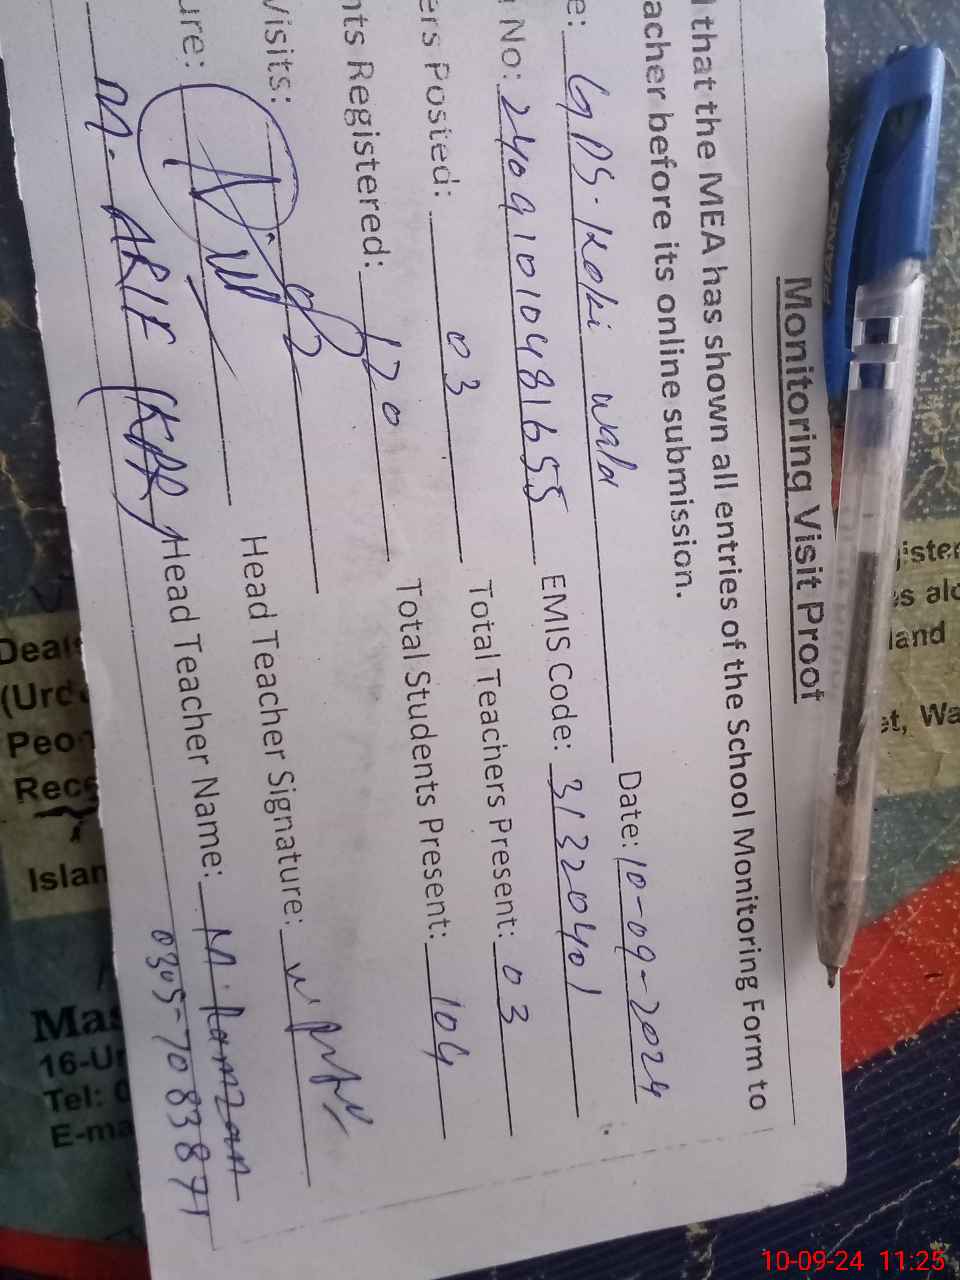 Monitoring Visit Proof
that the MEA has shown all entries of the School Monitoring Form to
acher before its online submission.
e: GPS. Koki wala Date: 10-09-2024
No: 24091010481655 EMIS Code: 313220401
ers Posted: 03 Total Teachers Present: 03
nts Registered: 120 Total Students Present: 104
Visits: 02
ure: Head Teacher Signature:
M. ARIF (KPR) Head Teacher Name: M. Ramzan
0305-7083871
ister
s alo
land
et, Wa
Deal
(Urd
Peo
Rec
Islan
Mas
16-Ur
Tel: 0
E-ma
10-09-24 11:25